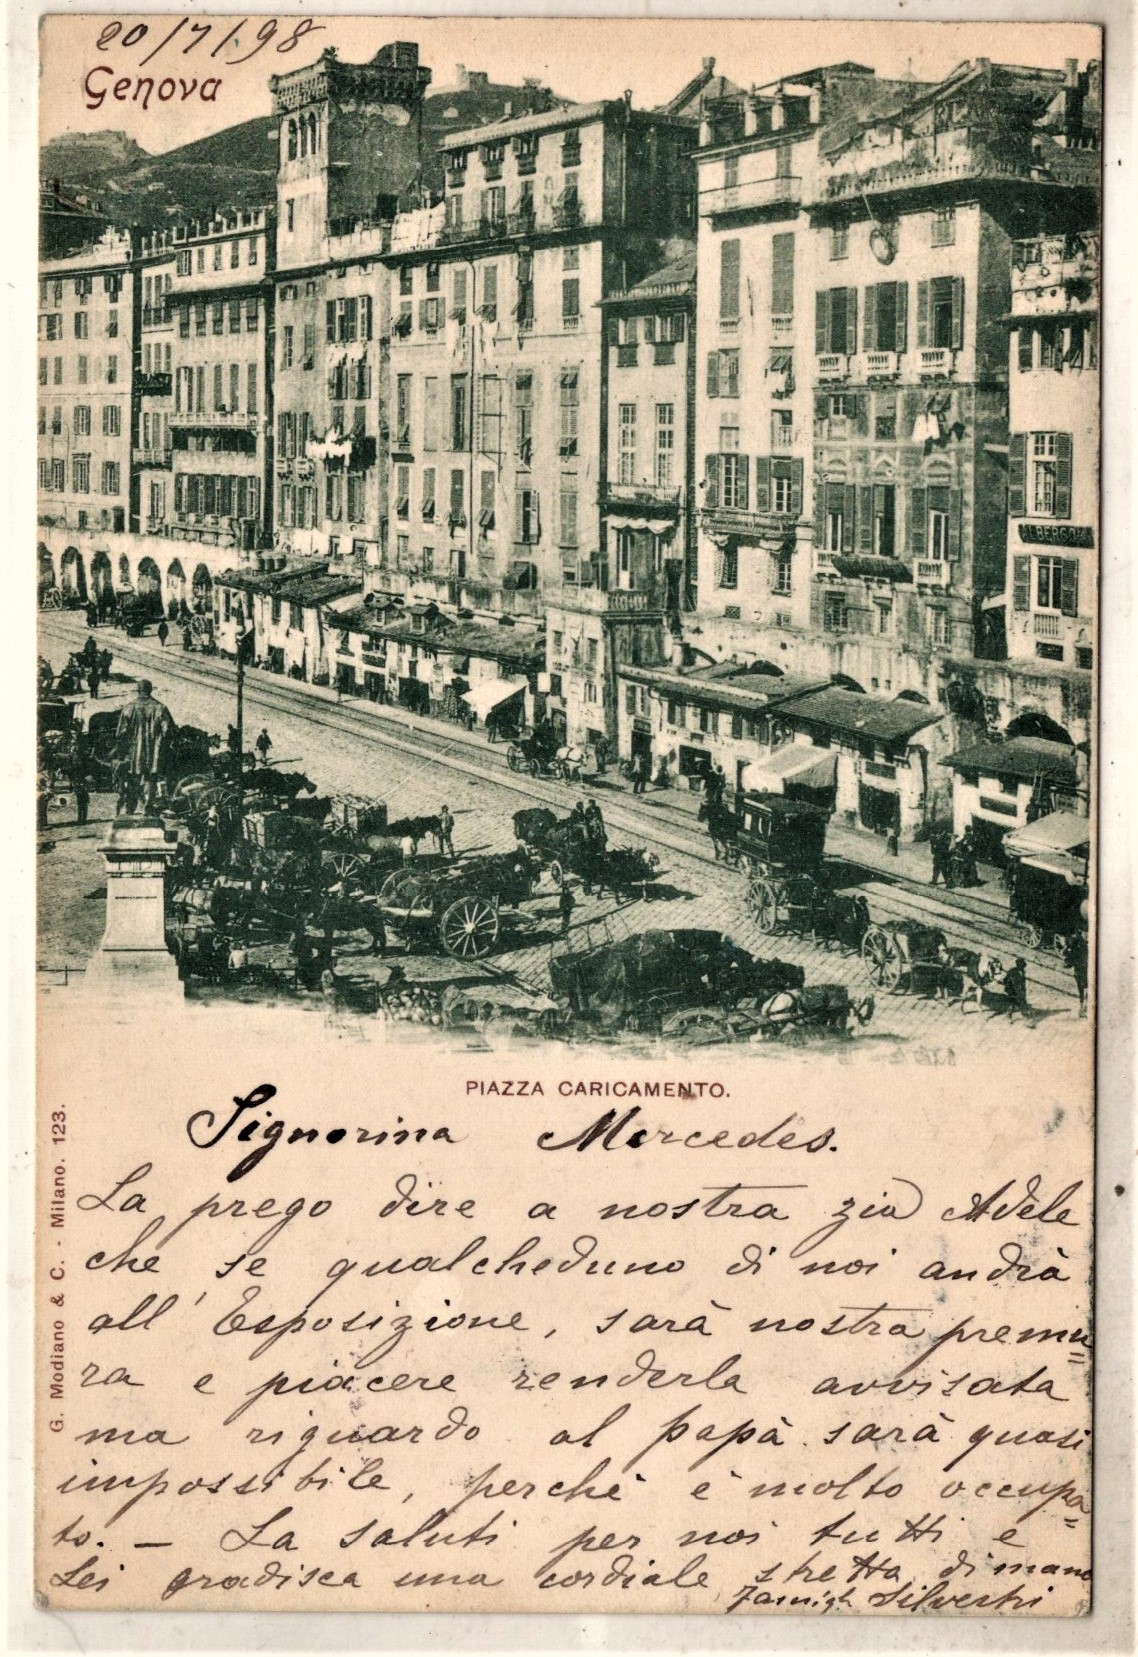 20/7/98
Genova
ALBERGO
PIAZZA CARICAMENTO.
G. Modiano & C. - Milano. 123.
Signorina Mercedes.
La prego dire a nostra zia Adele
che se qualcheduno di noi andrà
all' Esposizione, sarà nostra premu=
ra e piacere renderla avvisata
ma riguardo al papà sarà quasi
impossibile, perchè è molto occupa=
to. — La saluti per noi tutti e
Lei gradisca una cordiale stretta di mano
Silvestri